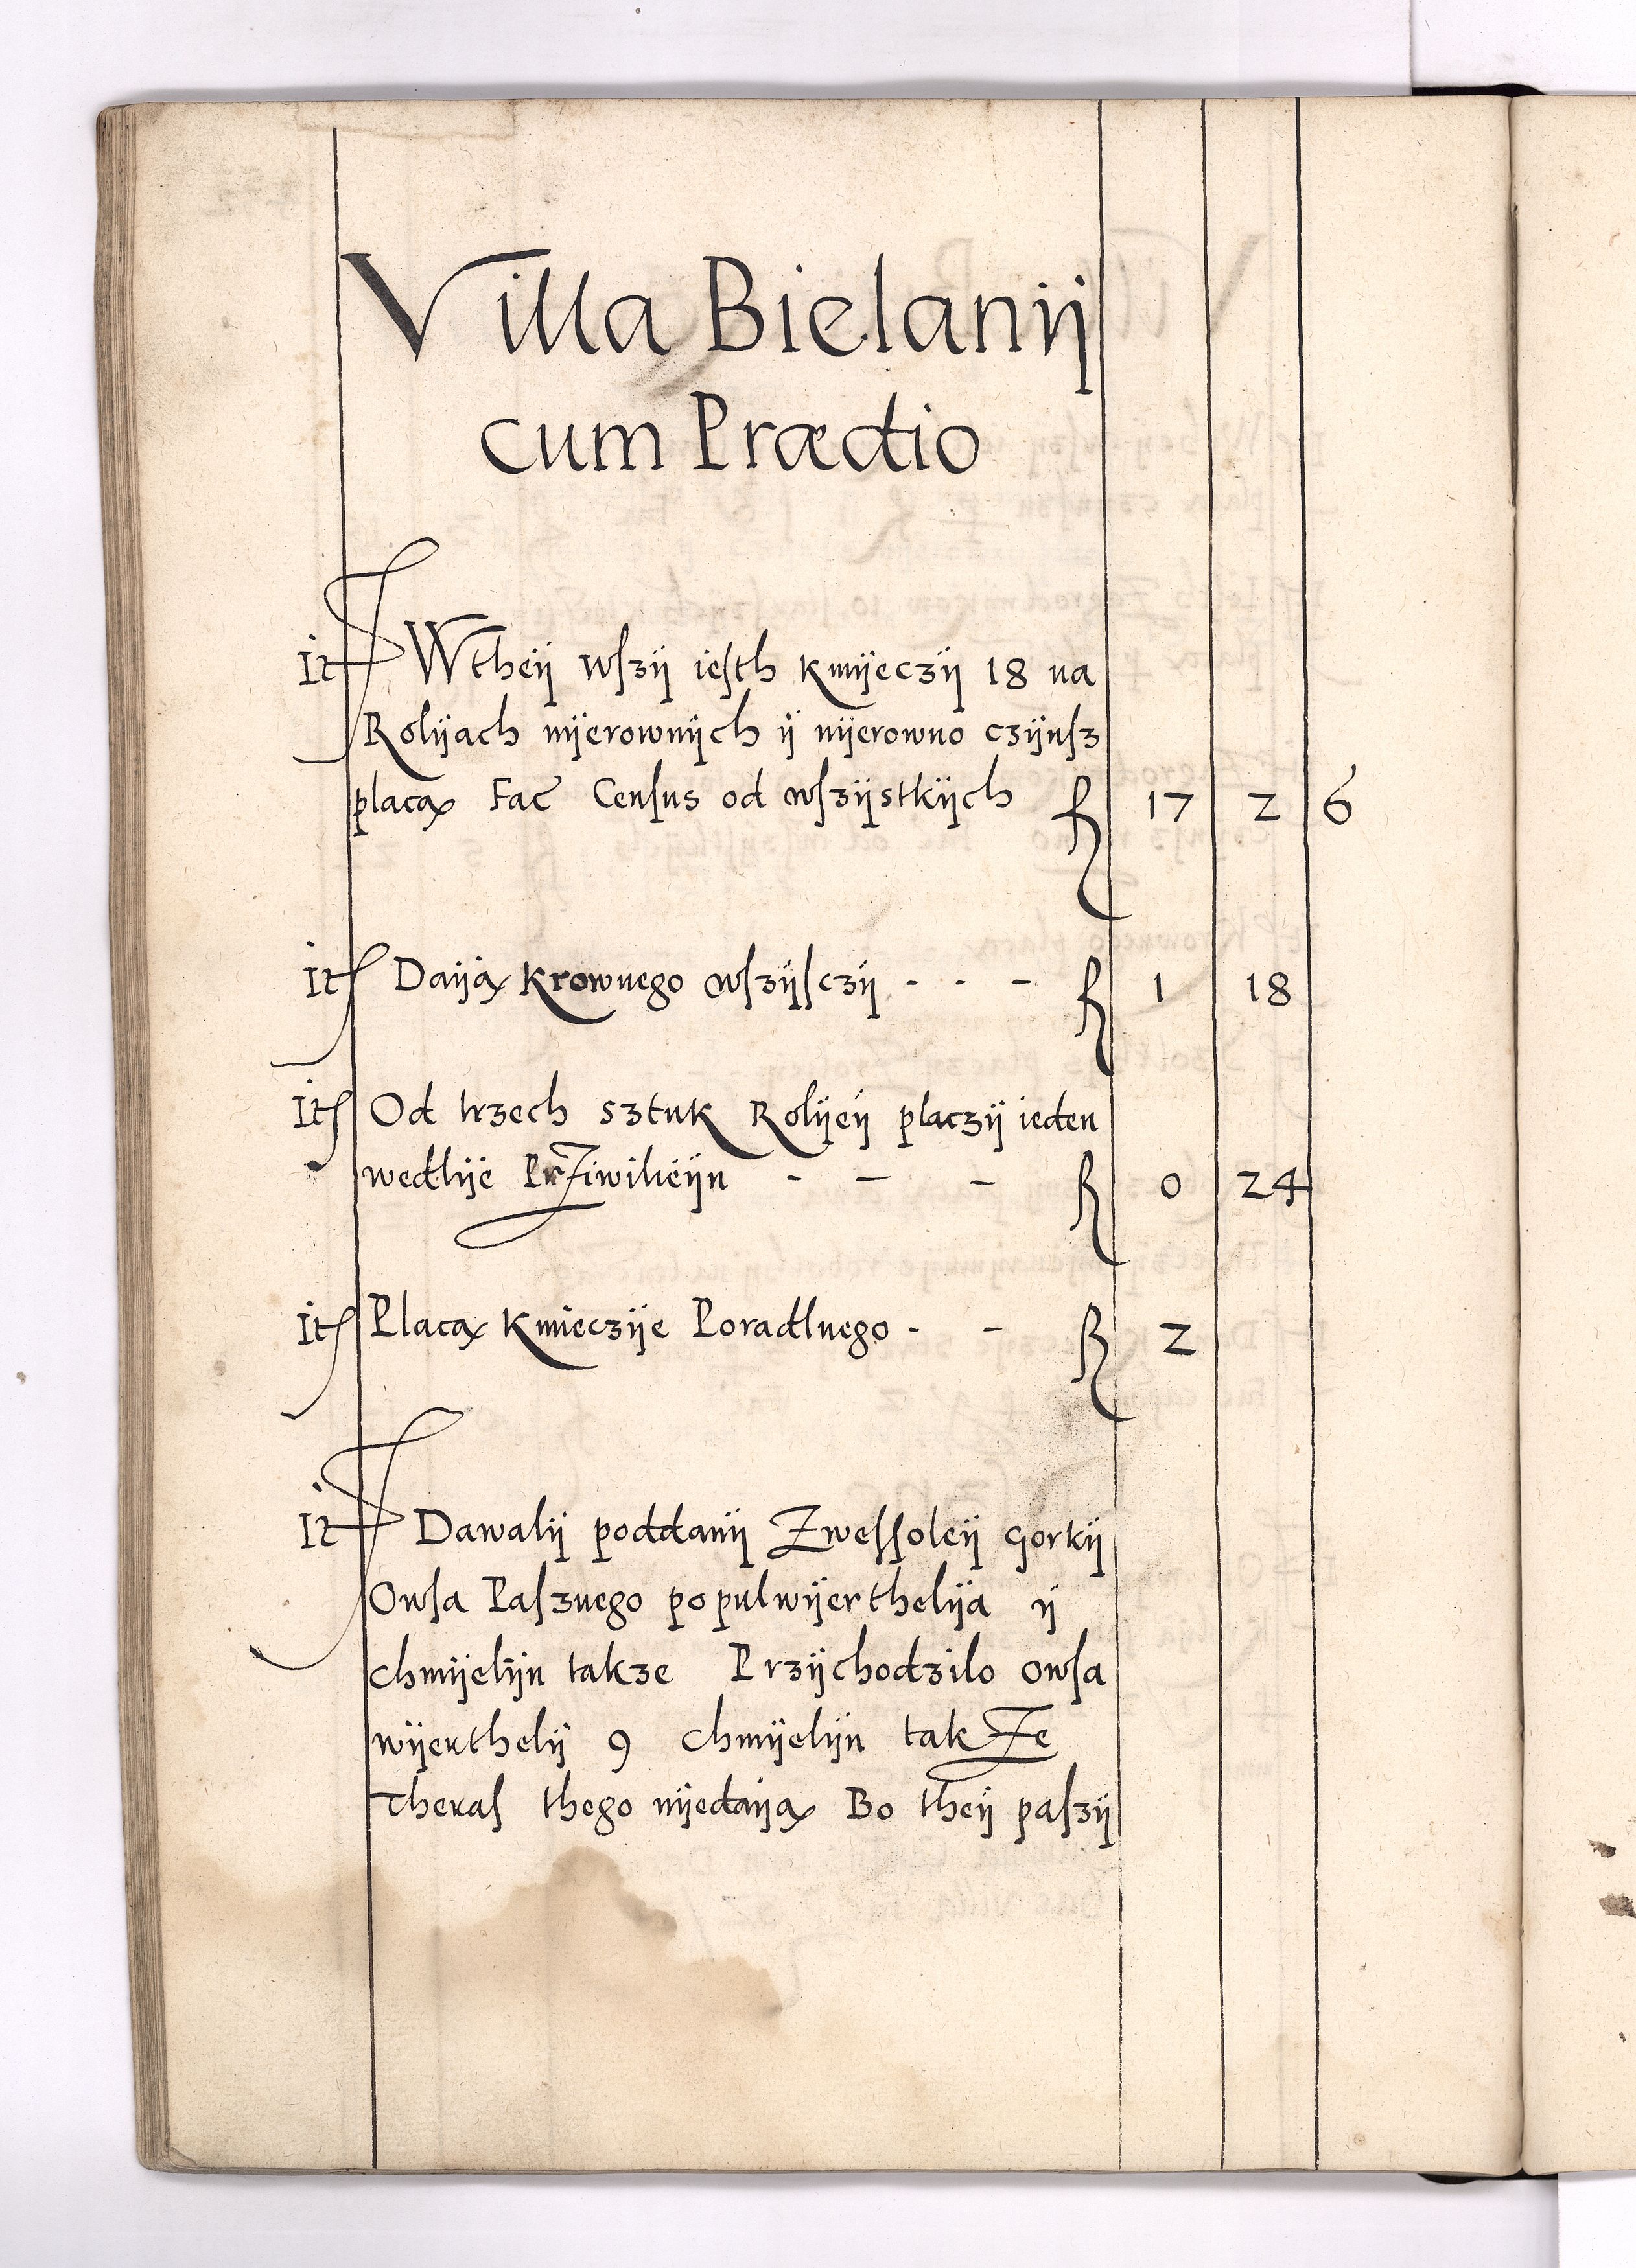 Villa Bielanij
cum Prædio
It Wtheij wſzij ieſth kmijeczij 18 na
Rolijach nijerownijch ij nijerowno czijnſz
placą Fac Cenſus od wſzijstkijch 17 2 6
It Daiją krownego wſzijſczij - - - 1 18
It Od trzech sztuk Rolijeij placzij ieden
wedlije PrZiwilieijn - - - 0 24
It Placą kmieczije Poradlnego - - 2
It Dawalij poddanij Zweſſoleij gorkij
Owſa Paſznego po pulwijerthelija ij
chmijelijn takze Przijchodzilo owſa
wijerthelij 9 chmijelijn takZe
Theraſ thego nijedaiją Bo theij paſzij